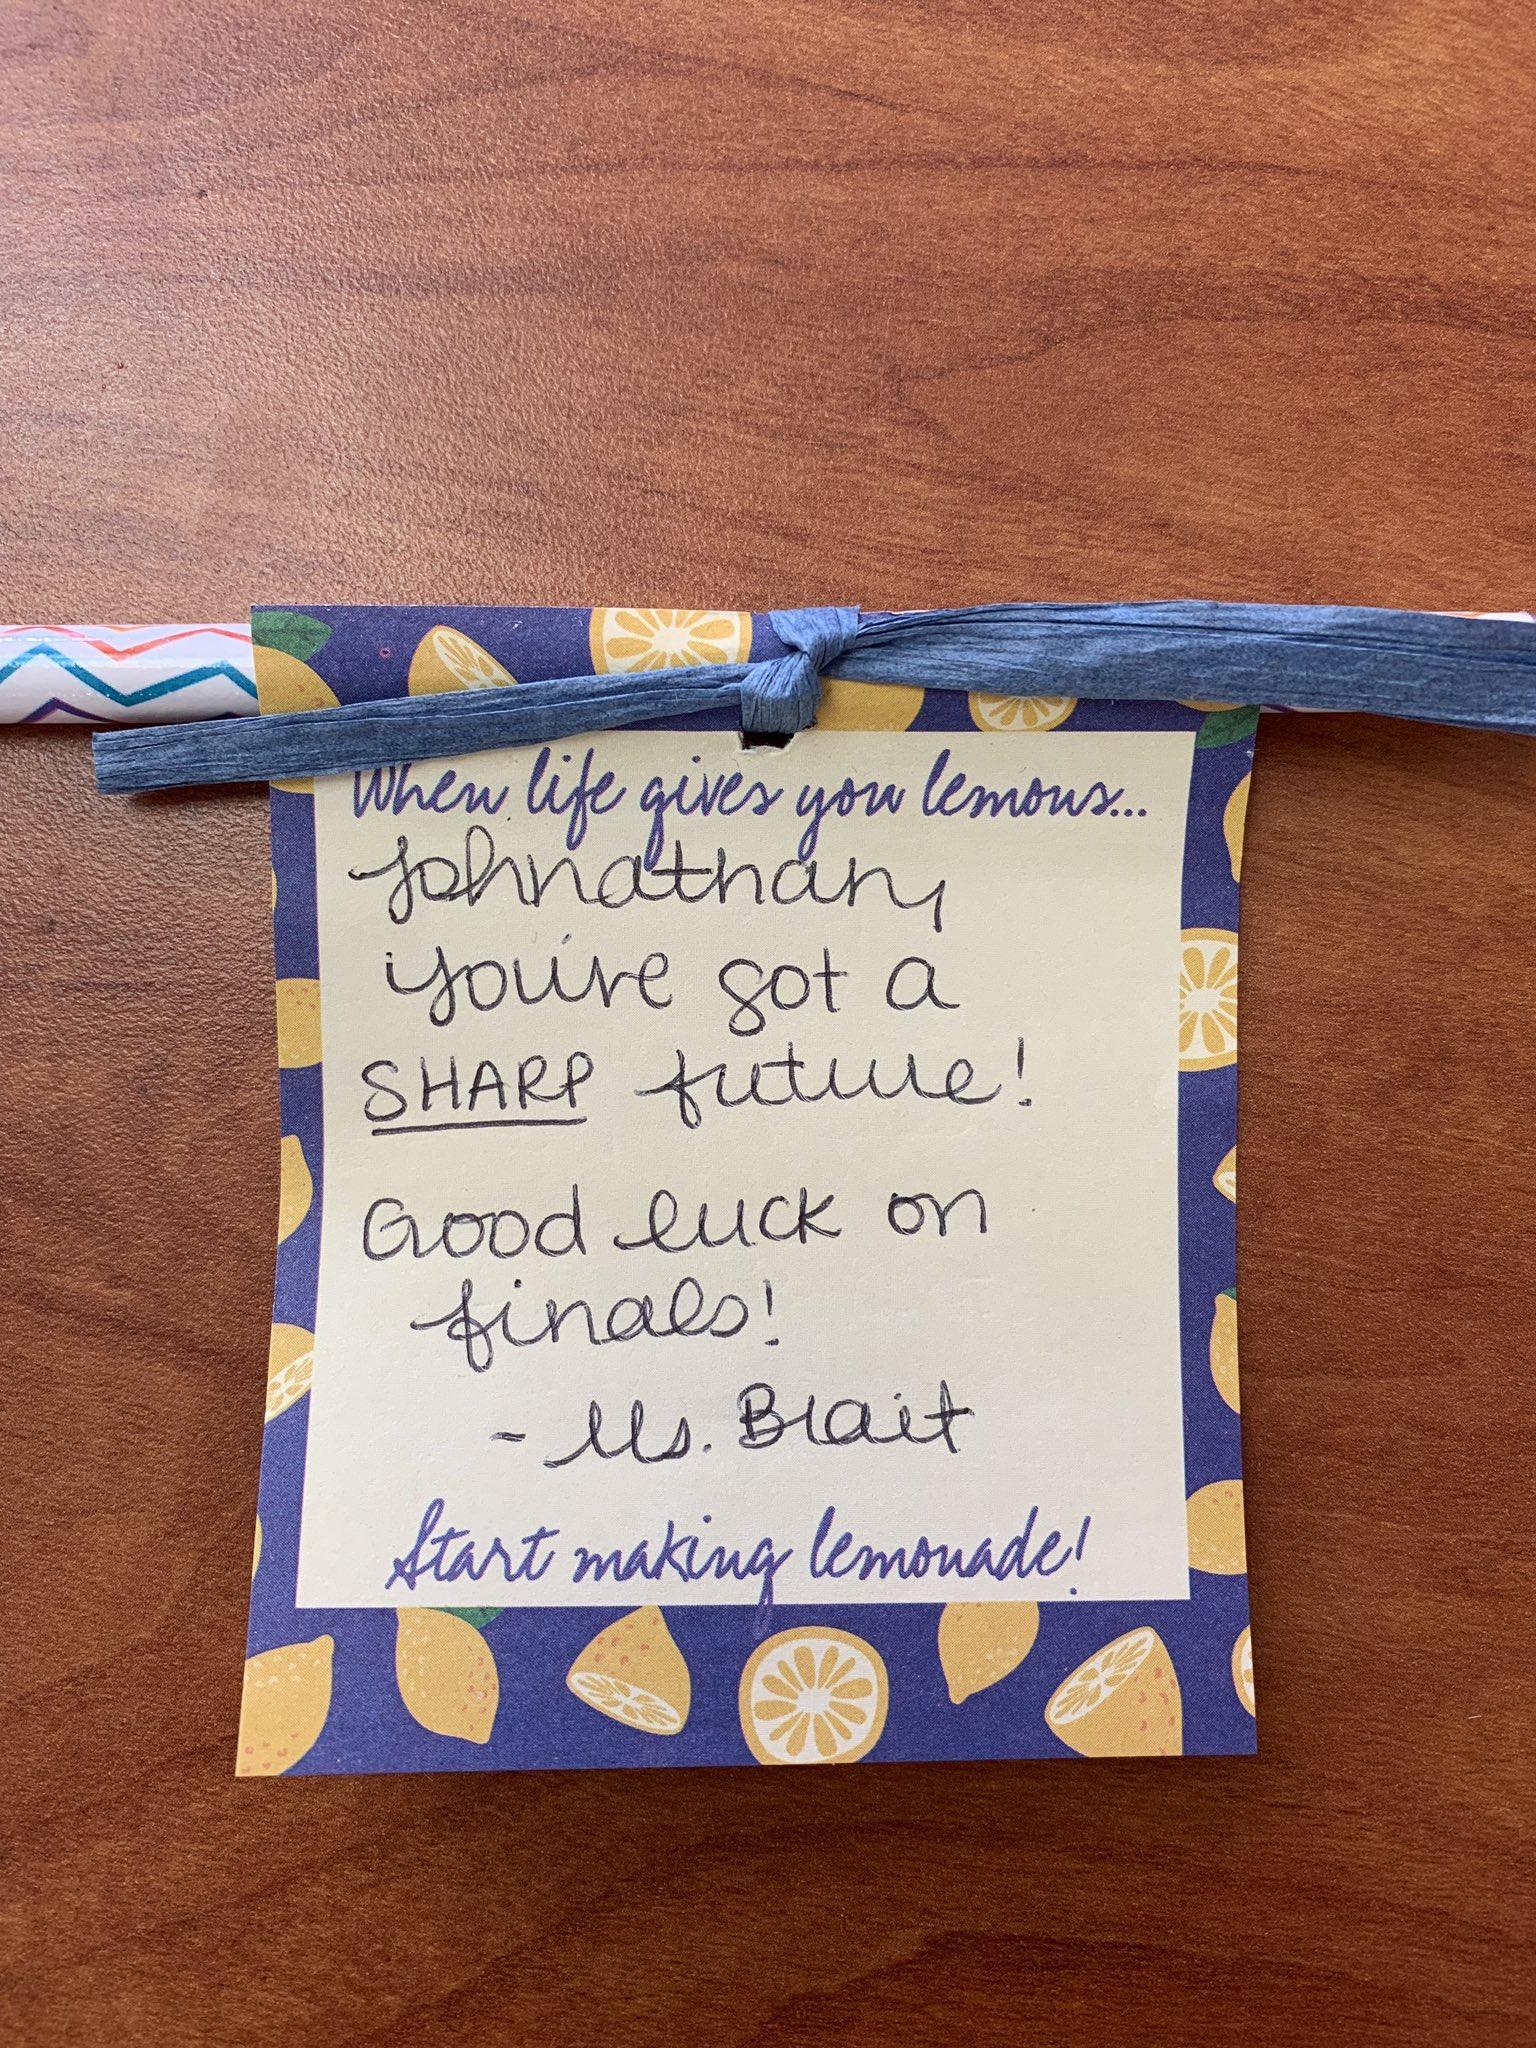 When life gives you lemons...
Johnathan,
you've got a
SHARP future!
Good luck on
finals!
- Ms. Brait
Start making lemonade!